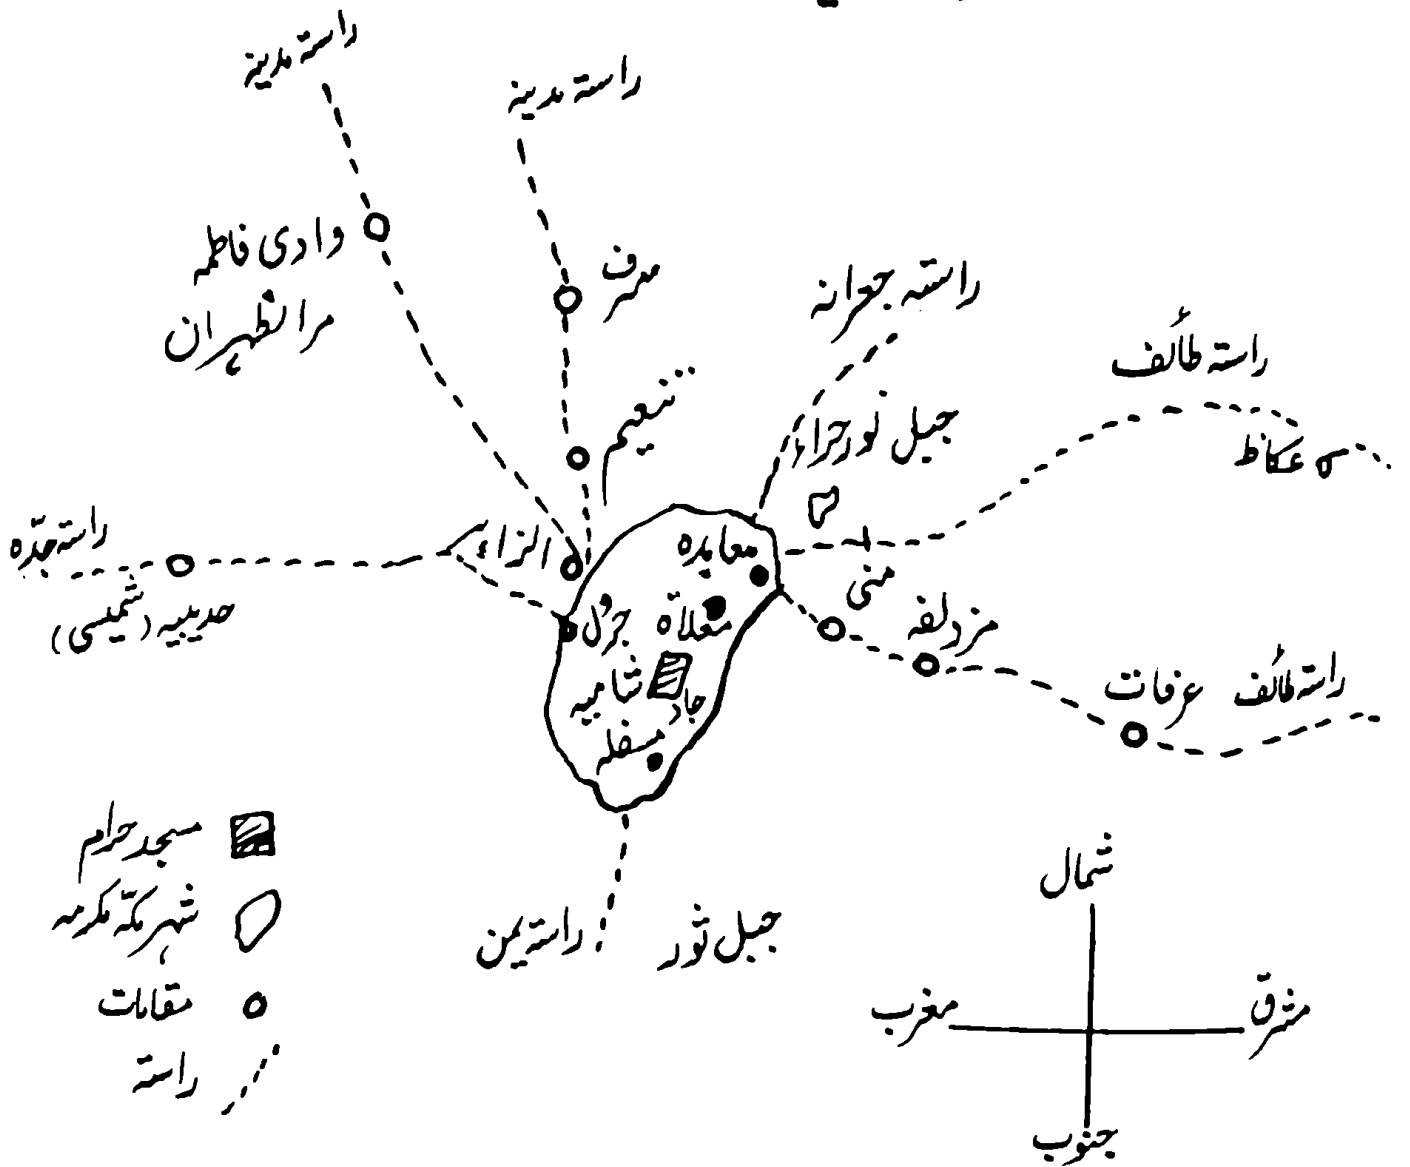 راستہ مدینہ
راستہ مدینہ
وادی فاطمہ
مرالظہران
سرف
راستہ جعرانہ
راستہ طائف
عکاظ
تنعیم
جبل نور حراء
راستہ جدّہ
حدیبیہ (شمیسی)
الزاہر
معابدہ
منیٰ
جرول
معلاۃ
مزدلفہ
شامیہ
عرفات
راستہ طائف
مسفلہ
مسجد حرام
شہر مکّہ مکرمہ
مقامات
راستہ
راستہ یمن
جبل ثور
شمال
مغرب
مشرق
جنوب